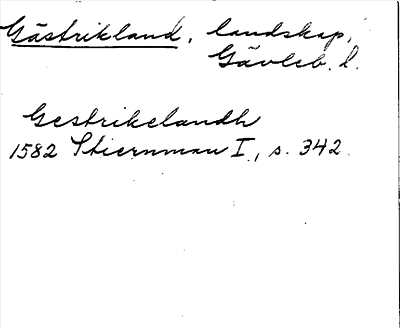 Gästrikland, landskap,
Gävleb. l.
Gestrikelandh
1582 Stiernman I, s. 342.